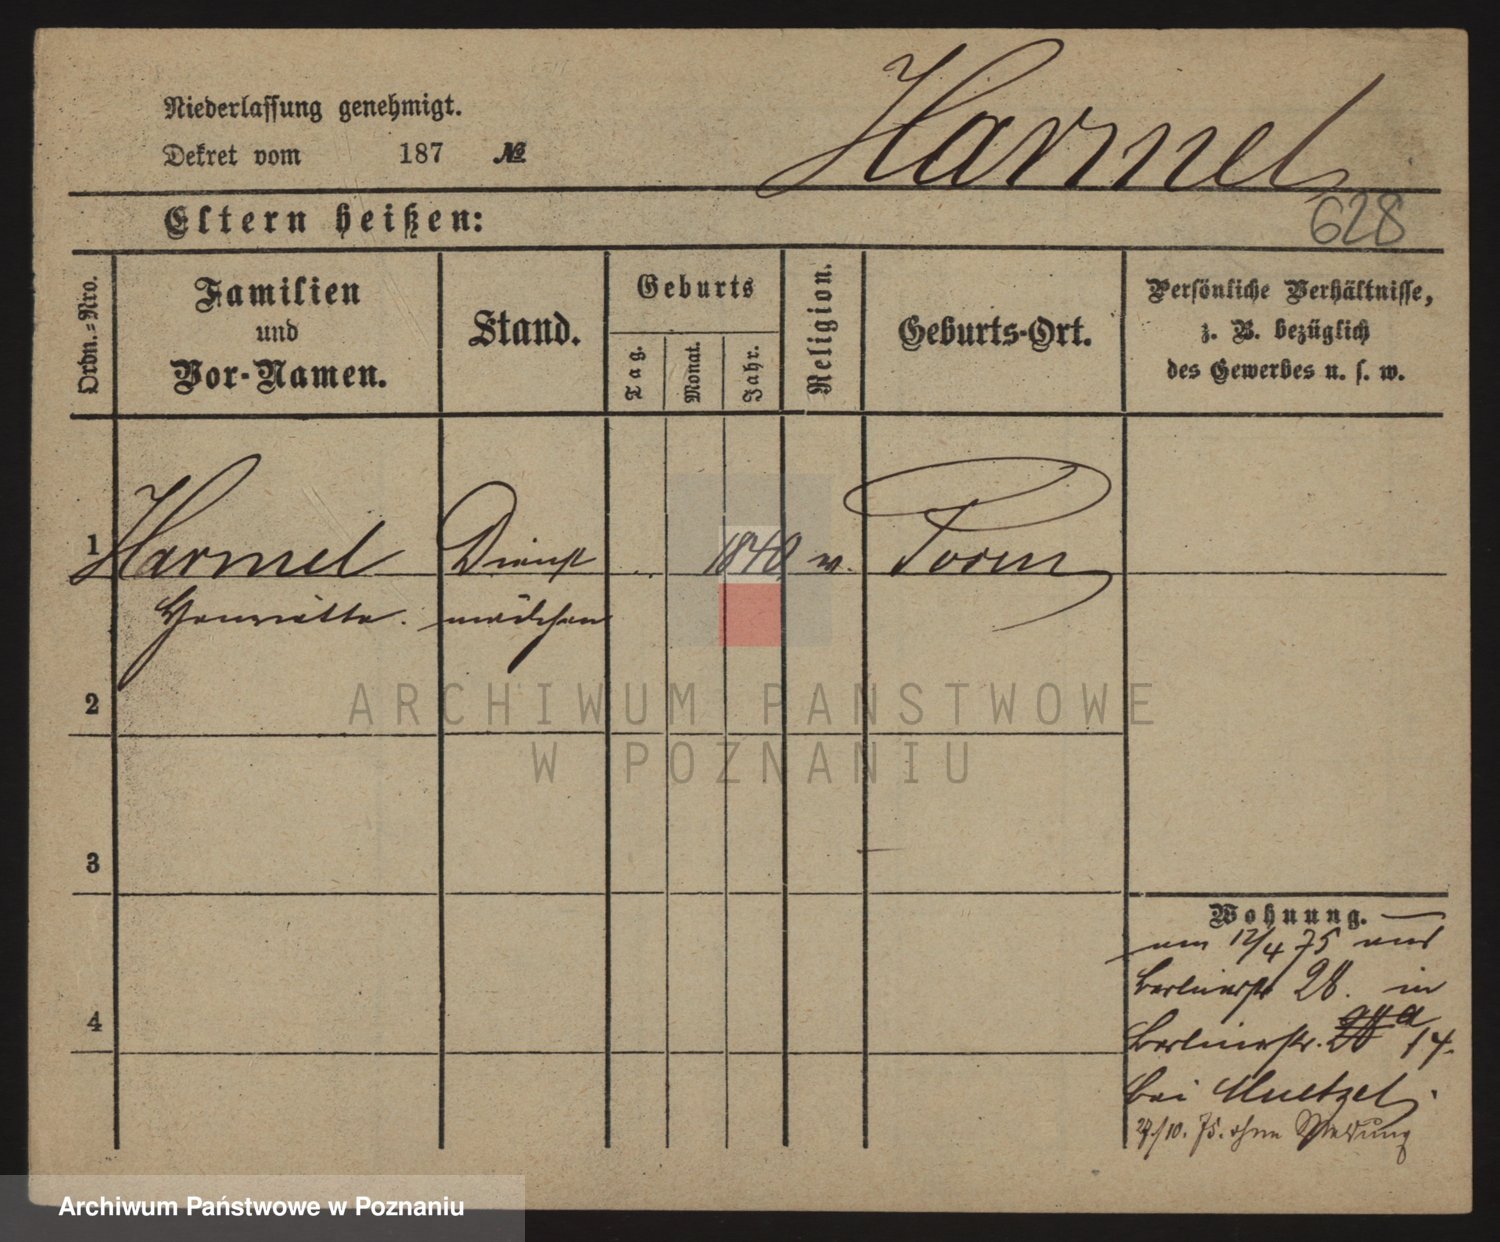 Niederlassung genehmigt.
Dekret vom 187 №
Harmel
628
Eltern heißen:
Ordn.-Nro.
Familien
und
Vor-Namen.
Stand.
Geburts
Tag.
Monat.
Jahr.
Religion.
Geburts-Ort.
Persönliche Verhältnisse,
z. B. bezüglich
des Gewerbes u. s. w.
1 Harmel Dienst 1848
Henriette. mädchen
2
ARCHIWUM PAŃSTWOWE
W POZNANIU
3
Wohnung.
12/4 75
Berlinerstr 28. in
4
Berlinerstr. 14.
bei Muetzel.
27/10. 75. ohne Meldung
Archiwum Państwowe w Poznaniu